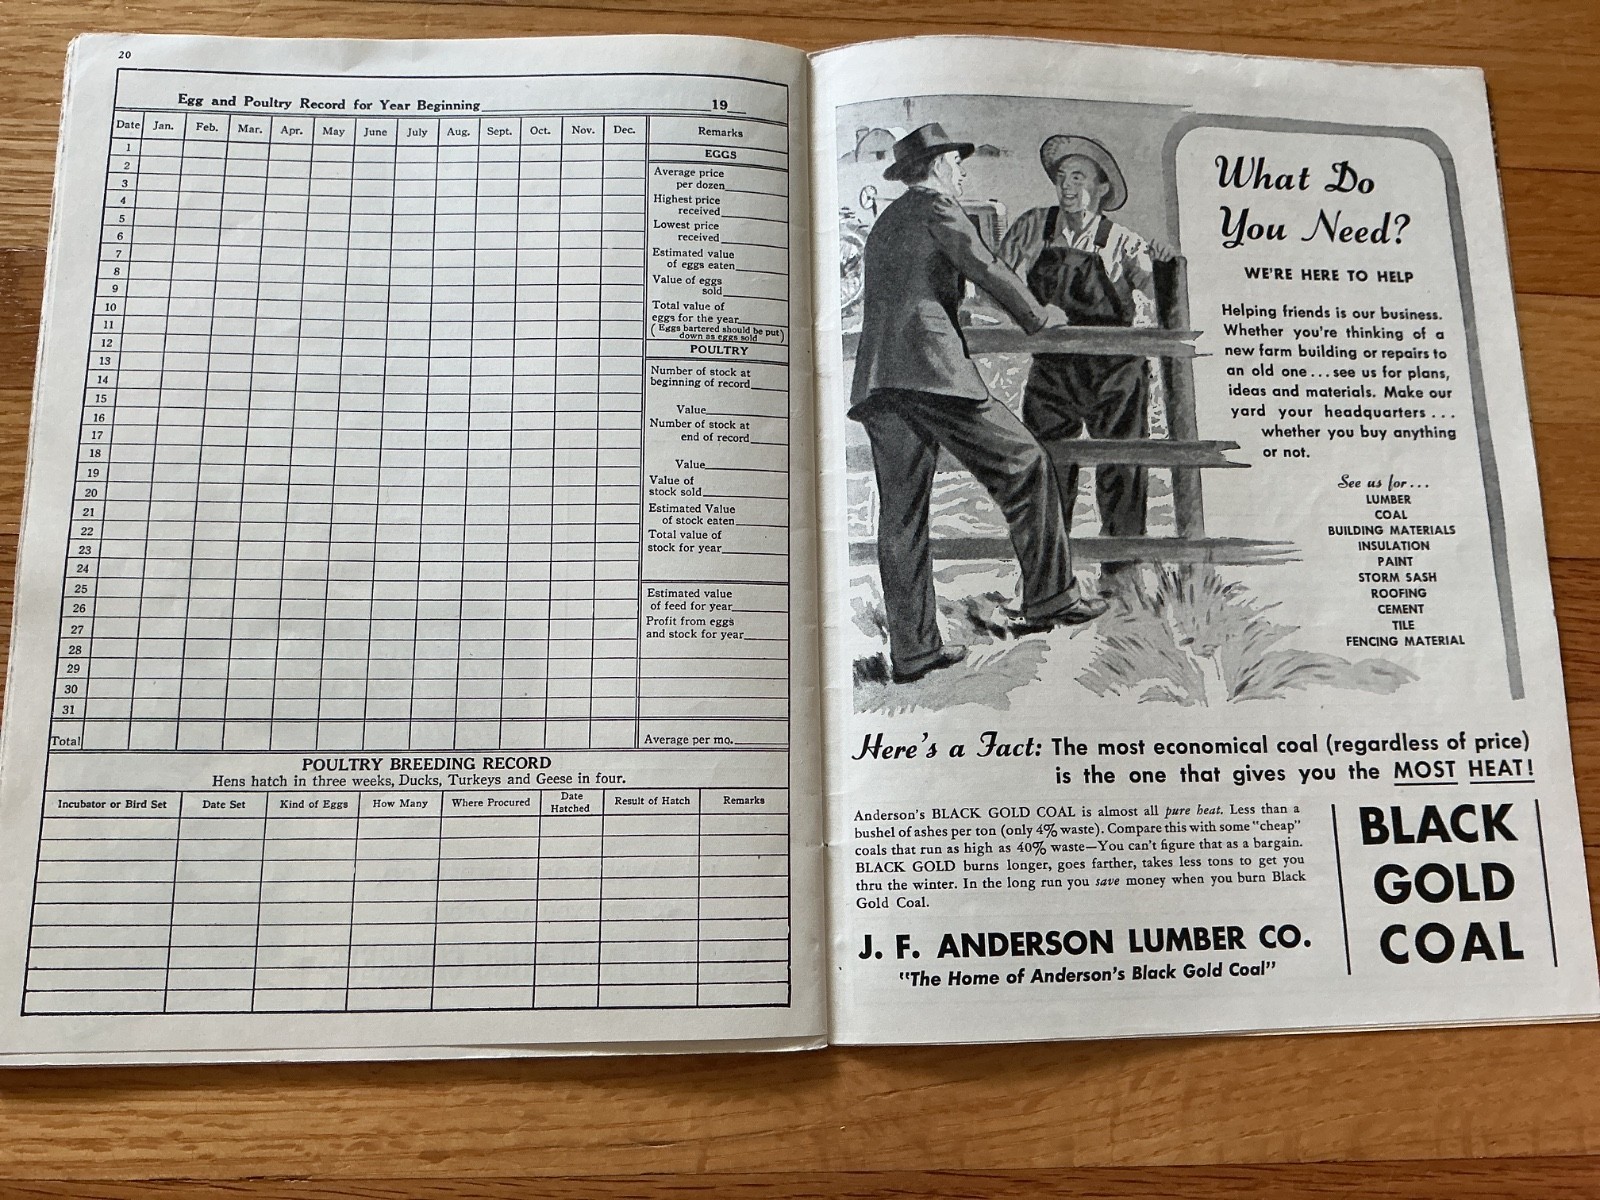 20
Egg and Poultry Record for Year Beginning 19
Date Jan. Feb. Mar. Apr. May June July Aug. Sept. Oct. Nov. Dec. Remarks
1
2
3
4
5
6
7
8
9
10
11
12
13
14
15
16
17
18
19
20
21
22
23
24
25
26
27
28
29
30
31
Total
EGGS
Average price
per dozen
Highest price
received
Lowest price
received
Estimated value
of eggs eaten
Value of eggs
sold
Total value of
eggs for the year
(Eggs bartered should be put
down as eggs sold)
POULTRY
Number of stock at
beginning of record
Value
Number of stock at
end of record
Value
Value of
stock sold
Estimated Value
of stock eaten
Total value of
stock for year
Estimated value
of feed for year
Profit from eggs
and stock for year
Average per mo.
POULTRY BREEDING RECORD
Hens hatch in three weeks, Ducks, Turkeys and Geese in four.
Incubator or Bird Set Date Set Kind of Eggs How Many Where Procured Date Hatched Result of Hatch Remarks
What Do
You Need?
WE'RE HERE TO HELP
Helping friends is our business.
Whether you're thinking of a
new farm building or repairs to
an old one...see us for plans,
ideas and materials. Make our
yard your headquarters...
whether you buy anything
or not.
See us for...
LUMBER
COAL
BUILDING MATERIALS
INSULATION
PAINT
STORM SASH
ROOFING
CEMENT
TILE
FENCING MATERIAL
Here's a Fact: The most economical coal (regardless of price)
is the one that gives you the MOST HEAT!
Anderson's BLACK GOLD COAL is almost all pure heat. Less than a
bushel of ashes per ton (only 4% waste). Compare this with some "cheap"
coals that run as high as 40% waste—You can't figure that as a bargain.
BLACK GOLD burns longer, goes farther, takes less tons to get you
thru the winter. In the long run you save money when you burn Black
Gold Coal.
J. F. ANDERSON LUMBER CO.
"The Home of Anderson's Black Gold Coal"
BLACK
GOLD
COAL